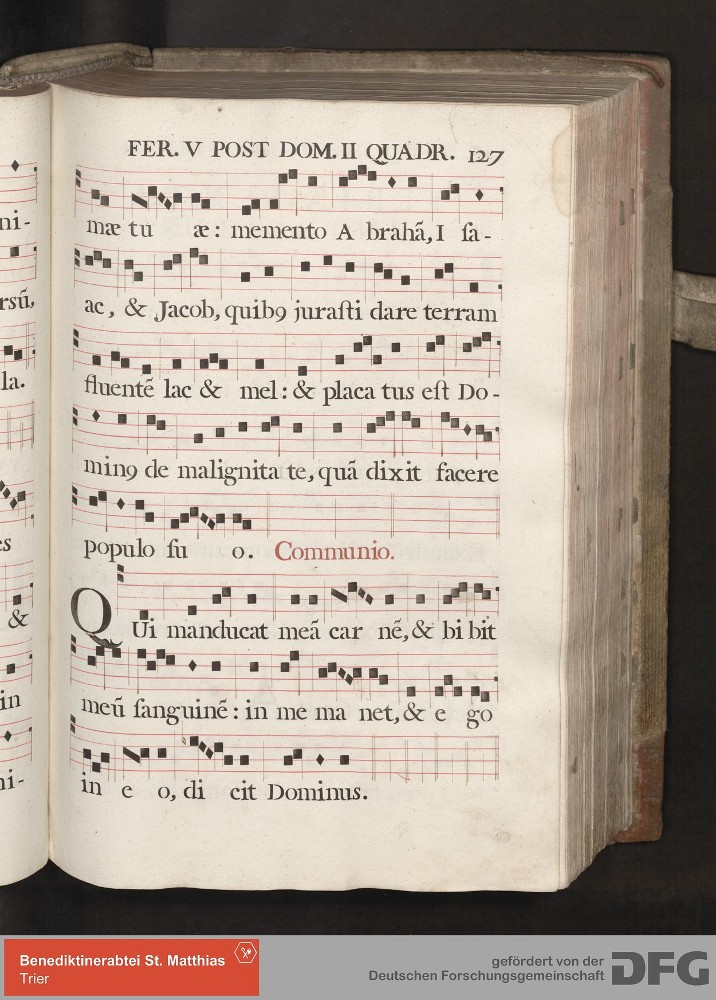 FER. V POST DOM. II QUADR. 127
mæ tu æ: memento A brahã, I ſa-
ac, & Jacob, quibꝯ juraſti dare terram
fluentẽ lac & mel: & placa tus eſt Do-
minꝯ de malignita te, quã dixit facere
populo ſu o. Communio.
QUi manducat meã car nẽ, & bi bit
meũ ſanguinẽ: in me ma net, & e go
in e o, di cit Dominus.
ni-
rsũ,
la.
es
&
in
ni-
Benediktinerabtei St. Matthias
Trier
gefördert von der
Deutschen Forschungsgemeinschaft
DFG